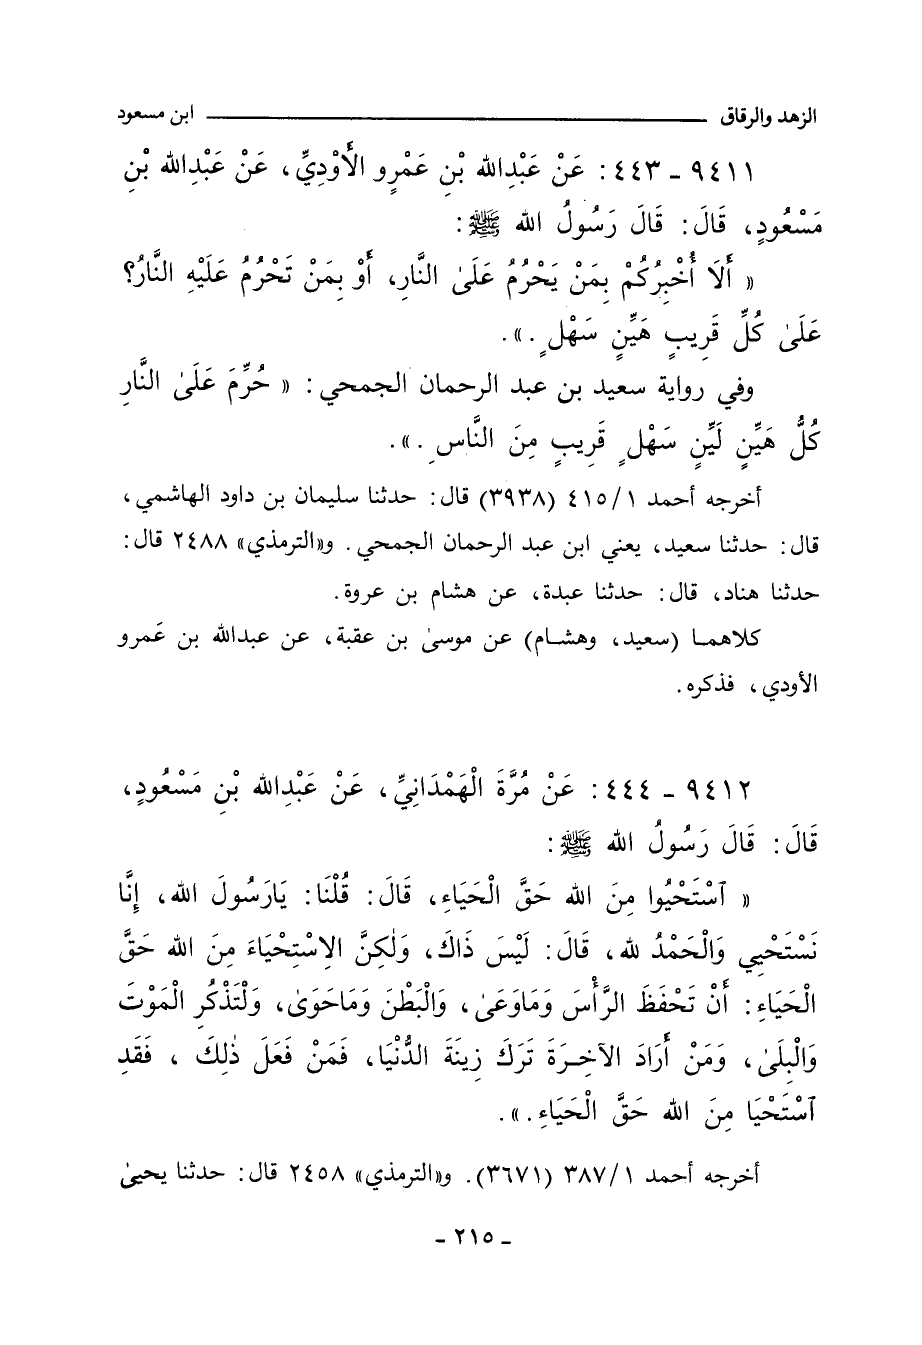 الزهد والرقاق ــــــــــــــــ ابن مسعود
٩٤١١ - ٤٤٣ : عَنْ عَبْدِالله بْنِ عَمْرٍو الأَوْدِيِّ، عَنْ عَبْدِالله بْنِ
مَسْعُودٍ، قَالَ: قَالَ رَسُولُ الله ﷺ:
« أَلَا أُخْبِرُكُمْ بِمَنْ يَحْرُمُ عَلَىٰ النَّارِ، أَوْ بِمَنْ تَحْرُمُ عَلَيْهِ النَّارُ؟
عَلَىٰ كُلِّ قَرِيبٍ هَيِّنٍ سَهْلٍ .» .
وفي رواية سعيد بن عبد الرحمان الجمحي: « حُرِّمَ عَلَىٰ النَّارِ
كُلُّ هَيِّنٍ لَيِّنٍ سَهْلٍ قَرِيبٍ مِنَ النَّاسِ .» .
أخرجه أحمد ٤١٥/١ (٣٩٣٨) قال: حدثنا سليمان بن داود الهاشمي،
قال: حدثنا سعيد، يعني ابن عبد الرحمان الجمحي. و«الترمذي» ٢٤٨٨ قال:
حدثنا هناد، قال: حدثنا عبدة، عن هشام بن عروة.
كلاهما (سعيد، وهشام) عن موسىٰ بن عقبة، عن عبدالله بن عَمرو
الأودي، فذكره.
٩٤١٢ - ٤٤٤ : عَنْ مُرَّةَ الْهَمْدَانِيِّ، عَنْ عَبْدِالله بْنِ مَسْعُودٍ،
قَالَ: قَالَ رَسُولُ الله ﷺ:
« ٱسْتَحْيُوا مِنَ الله حَقَّ الْحَيَاءِ، قَالَ: قُلْنَا: يَارَسُولَ الله، إِنَّا
نَسْتَحْيِي وَالْحَمْدُ لله، قَالَ: لَيْسَ ذَاكَ، وَلٰكِنَّ الِاسْتِحْيَاءَ مِنَ الله حَقَّ
الْحَيَاءِ: أَنْ تَحْفَظَ الرَّأْسَ وَمَاوَعَىٰ، وَالْبَطْنَ وَمَاحَوَىٰ، وَلْتَذْكُرِ الْمَوْتَ
وَالْبِلَىٰ، وَمَنْ أَرَادَ الآخِرَةَ تَرَكَ زِينَةَ الدُّنْيَا، فَمَنْ فَعَلَ ذٰلِكَ ، فَقَدِ
ٱسْتَحْيَا مِنَ الله حَقَّ الْحَيَاءِ .» .
أخرجه أحمد ٣٨٧/١ (٣٦٧١). و«الترمذي» ٢٤٥٨ قال: حدثنا يحيىٰ
- ٢١٥ -